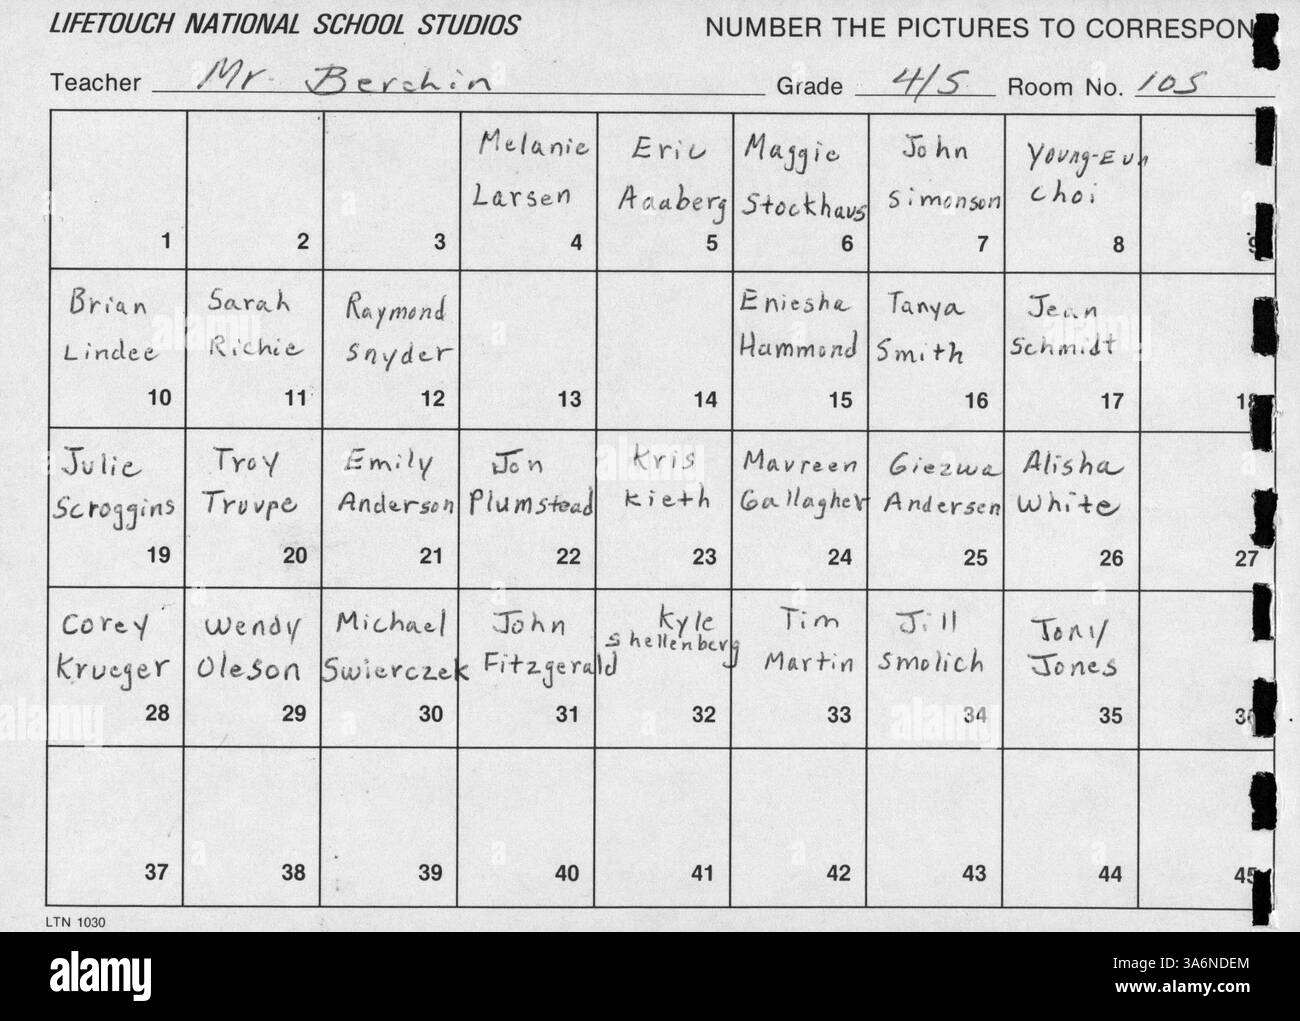 LIFETOUCH NATIONAL SCHOOL STUDIOS NUMBER THE PICTURES TO CORRESPON
Teacher Mr. Berchin Grade 4/5 Room No. 105
1
2
3
Melanie
Larsen
4
Eric
Aaaberg
5
Maggie
Stockhaus
6
John
Simonson
7
Young-Eun
Choi
8
9
Brian
Lindee
10
Sarah
Richie
11
Raymond
Snyder
12
13
14
Eniesha
Hammond
15
Tanya
Smith
16
Jean
Schmidt
17
18
Julie
Scroggins
19
Troy
Truvpe
20
Emily
Anderson
21
Jon
Plumstead
22
Kris
Kieth
23
Maureen
Gallagher
24
Giezwa
Andersen
25
Alisha
White
26
27
Corey
Krueger
28
Wendy
Oleson
29
Michael
Swierczek
30
John
Fitzgerald
31
Kyle
Shellenberg
32
Tim
Martin
33
Jill
Smolich
34
Tony
Jones
35
36
37
38
39
40
41
42
43
44
45
LTN 1030
alamy
Image ID: 3A6NDEM
www.alamy.com